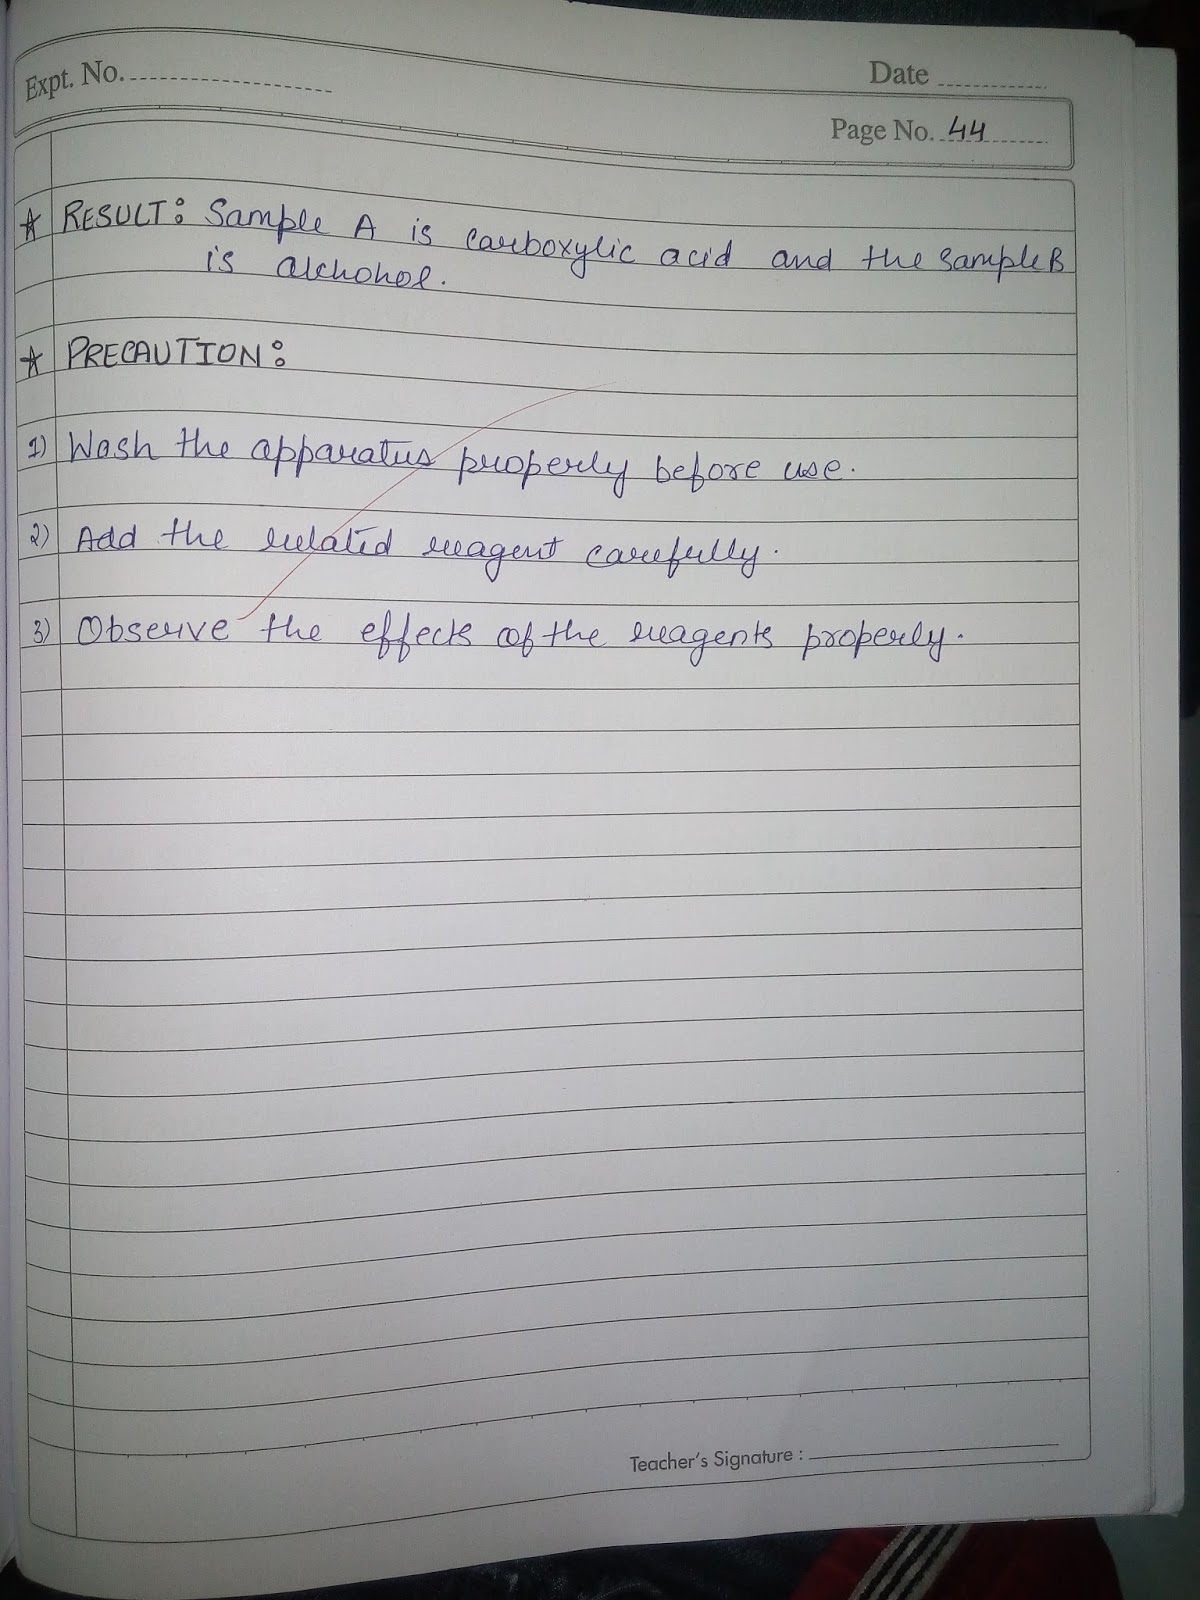 Expt. No.
Date
Page No. 44
☆ RESULT: Sample A is carboxylic acid and the Sample B
is alchohol.
☆ PRECAUTION:
1) Wash the apparatus properly before use.
2) Add the related reagent carefully.
3) Observe the effects of the reagents properly.
Teacher's Signature :